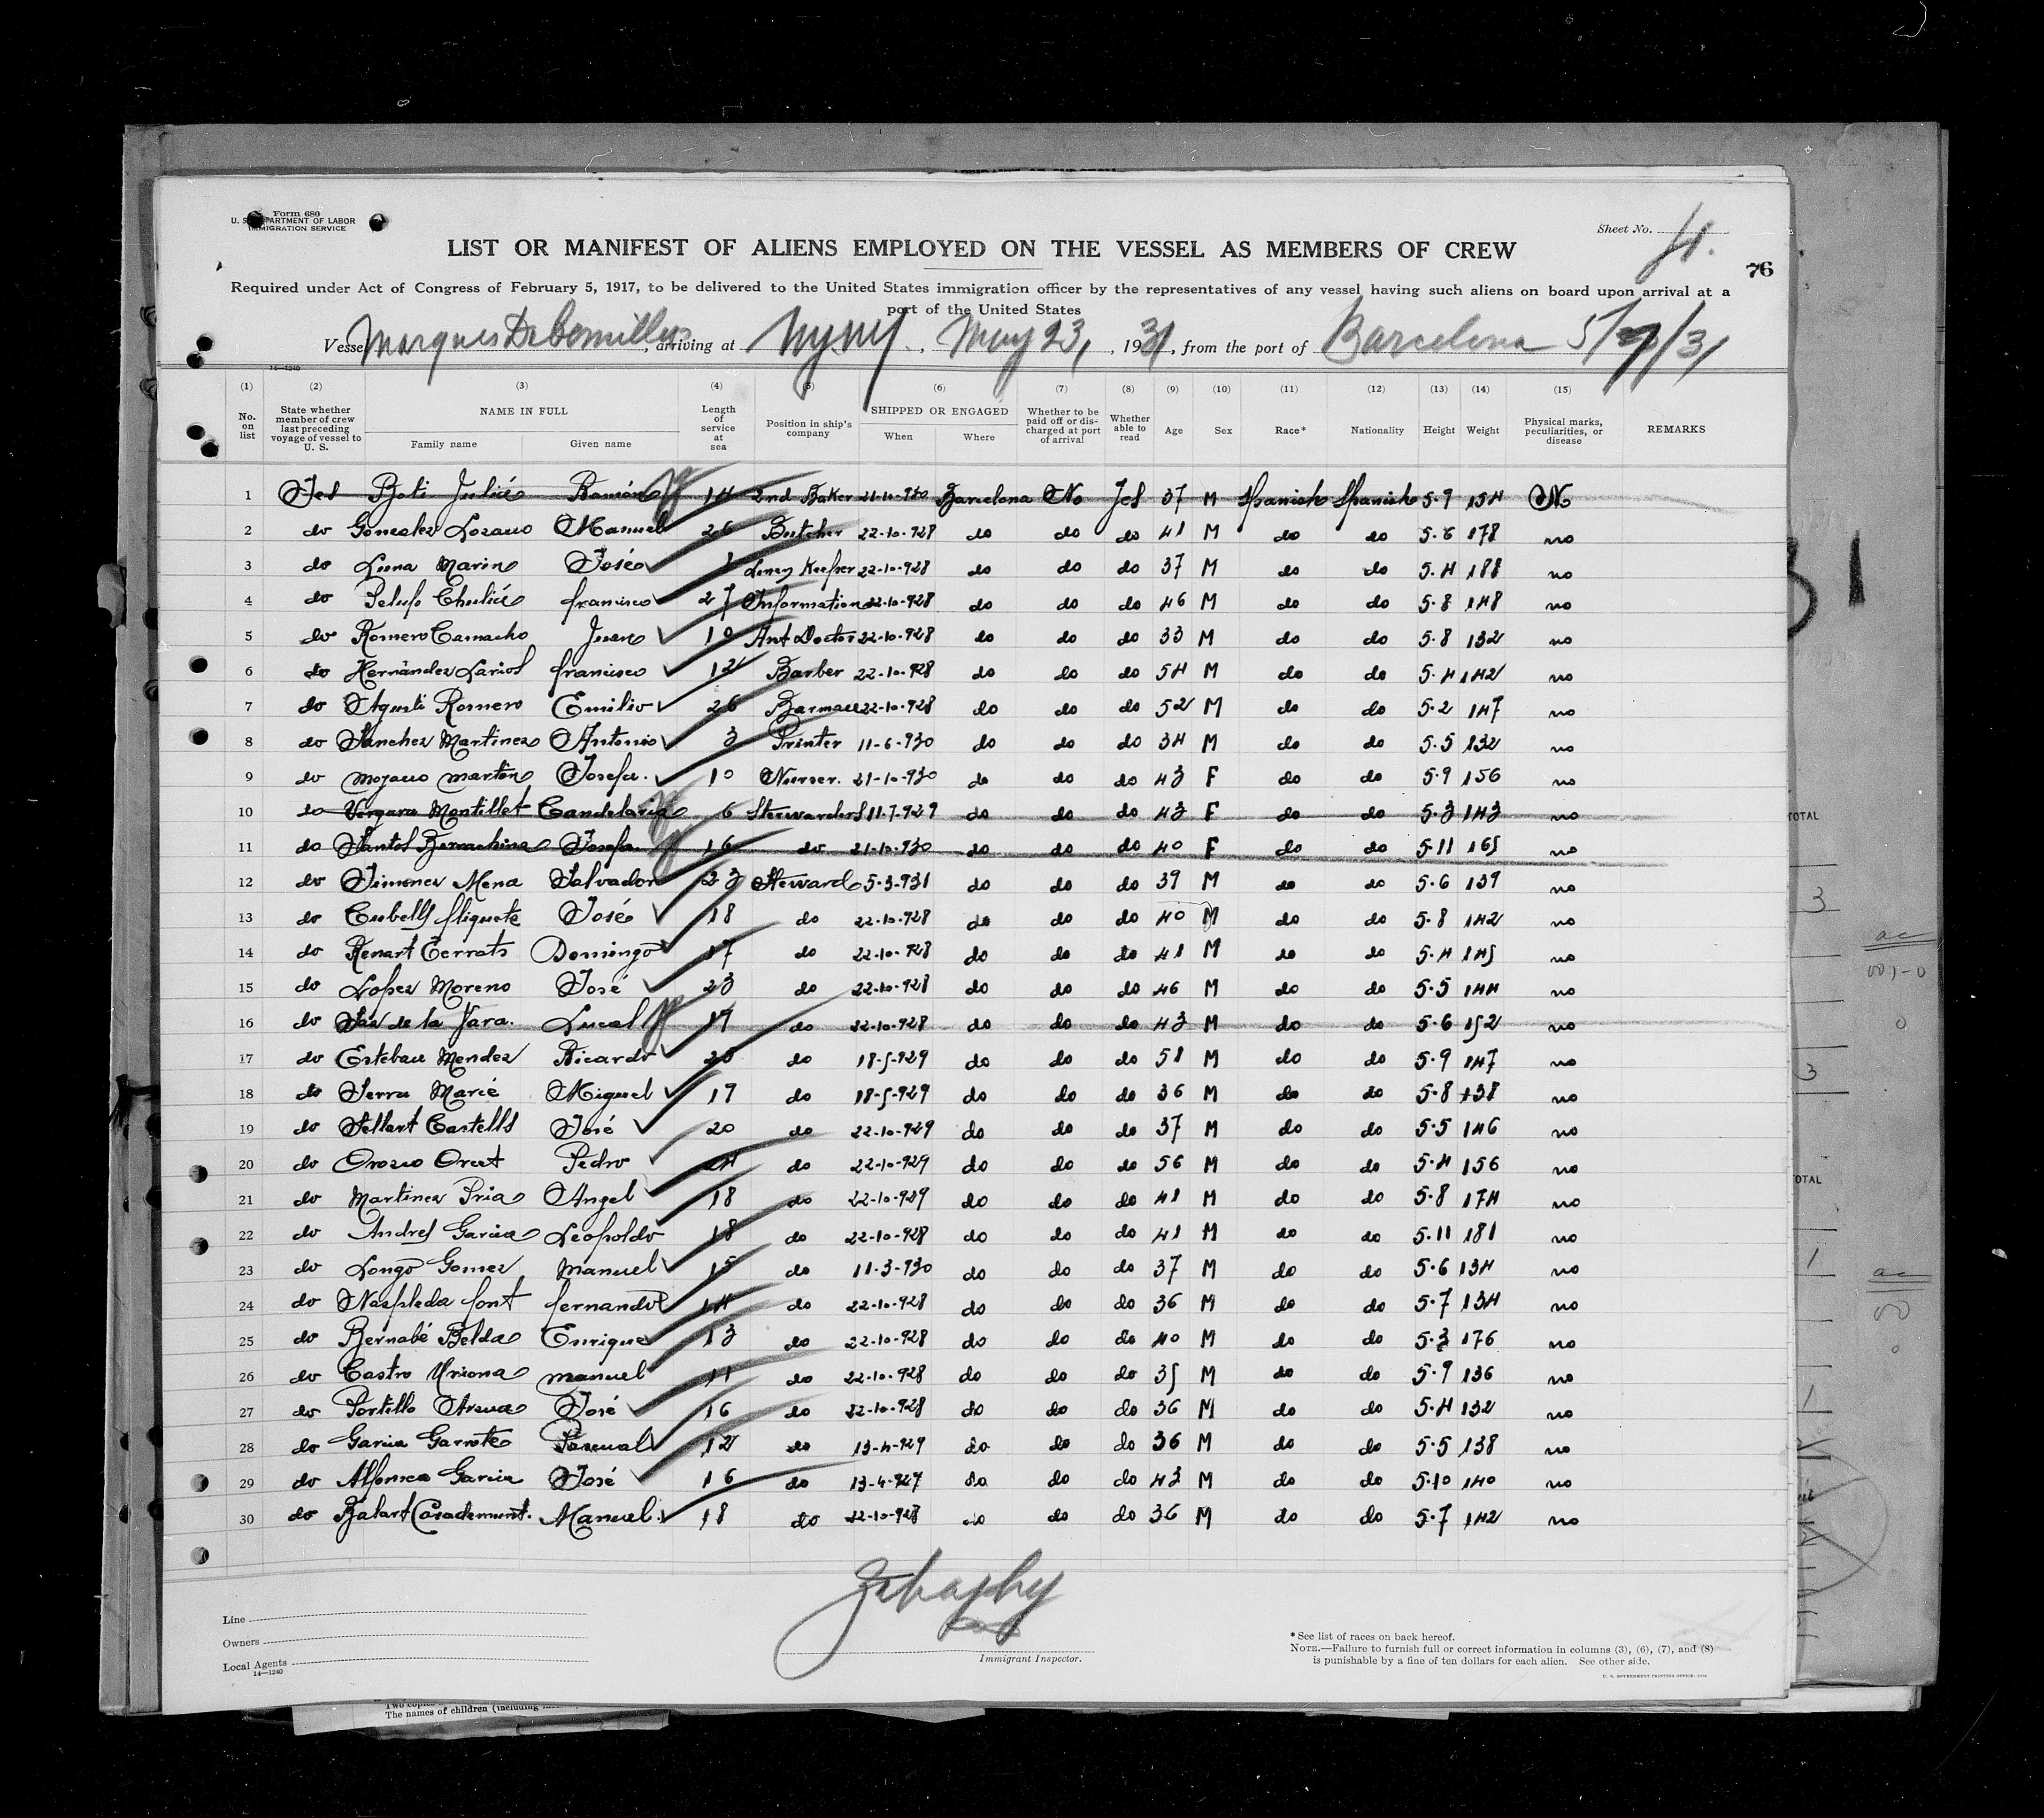 Form 680
U. S. DEPARTMENT OF LABOR
IMMIGRATION SERVICE
Sheet No. 4.
LIST OR MANIFEST OF ALIENS EMPLOYED ON THE VESSEL AS MEMBERS OF CREW
76
Required under Act of Congress of February 5, 1917, to be delivered to the United States immigration officer by the representatives of any vessel having such aliens on board upon arrival at a
port of the United States
Vessel Marques De Comillas, arriving at NYNY, May 23, 1931, from the port of Barcelona 5/ /31
14—1240
(1) (2) (3) (4) (5) (6) (7) (8) (9) (10) (11) (12) (13) (14) (15)
No. on list State whether member of crew last preceding voyage of vessel to U. S. NAME IN FULL Family name Given name Length of service at sea Position in ship's company SHIPPED OR ENGAGED When Where Whether to be paid off or discharged at port of arrival Whether able to read Age Sex Race* Nationality Height Weight Physical marks, peculiarities, or disease REMARKS
1 Yes Boti Juliá Ramón 14 2nd Baker 21-10-930 Barcelona No Yes 37 M Spanish Spanish 5.9 154 No
2 do Gonzalez Lozano Manuel 26 Butcher 22-10-928 do do do 41 M do do 5.6 178 no
3 do Luna Marin José Lineng Keeper 22-10-928 do do do 37 M do do 5.4 188 no
4 do Pelufo Chuliá francisco 27 Information 22-10-928 do do do 46 M do do 5.8 148 no
5 do Romero Camacho Juan 10 Ant Doctor 22-10-928 do do do 33 M do do 5.8 132 no
6 do Hernández Larios francisco 12 Barber 22-10-928 do do do 54 M do do 5.4 142 no
7 do Agusti Romero Emilio 26 Barman 22-10-928 do do do 52 M do do 5.2 147 no
8 do Sanchez Martinez Antonio 3 Printer 11-6-930 do do do 34 M do do 5.5 132 no
9 do Moyano martin Josefa. 10 Nurser. 21-10-930 do do do 43 F do do 5.9 156 no
10 do Vergara Montillet Candelaria 6 Stewardess 11-7-929 do do do 43 F do do 5.3 143 no
11 do Santos Bernachina Josefa. 16 do 21-10-930 do do do 40 F do do 5.11 165 no
12 do Jimenez Mena Salvador 23 Steward 5-3-931 do do do 39 M do do 5.6 139 no
13 do Cubells fliquete José 18 do 22-10-928 do do do 40 M do do 5.8 142 no
14 do Renart Cerrats Domingo 17 do 22-10-928 do do do 41 M do do 5.4 145 no
15 do Lopez Moreno José 23 do 22-10-928 do do do 46 M do do 5.5 144 no
16 do Saz de la Jara. Lucas 19 do 22-10-928 do do do 43 M do do 5.6 152 no
17 do Esteban Mendez Ricardo 20 do 18-5-929 do do do 51 M do do 5.9 147 no
18 do Serra Marié Miguel 17 do 18-5-929 do do do 36 M do do 5.8 138 no
19 do Sellart Castells José 20 do 22-10-929 do do do 37 M do do 5.5 146 no
20 do Orozco Orcet Pedro 24 do 22-10-929 do do do 56 M do do 5.4 156 no
21 do Martinez Pria Angel 18 do 22-10-929 do do do 41 M do do 5.8 174 no
22 do Andres Garcia Leopoldo 18 do 22-10-928 do do do 41 M do do 5.11 181 no
23 do Longo Gomez Manuel 15 do 11-3-930 do do do 37 M do do 5.6 134 no
24 do Naspleda font fernando 14 do 22-10-928 do do do 36 M do do 5.7 134 no
25 do Bernabé Belda Enrique 13 do 22-10-928 do do do 40 M do do 5.3 176 no
26 do Castro Uriona manuel 11 do 22-10-928 do do do 35 M do do 5.9 136 no
27 do Portillo Arena José 16 do 22-10-928 do do do 36 M do do 5.4 132 no
28 do Garcia Garrote Pascual 12 do 13-4-929 do do do 36 M do do 5.5 138 no
29 do Alfonso Garcia José 16 do 13-4-927 do do do 43 M do do 5.10 140 no
30 do Balart Casademunt. Manuel. 18 do 22-10-928 do do do 36 M do do 5.7 142 no
Line
Owners
Local Agents
14—1240
Immigrant Inspector.
*See list of races on back hereof.
NOTE.—Failure to furnish full or correct information in columns (3), (6), (7), and (8)
is punishable by a fine of ten dollars for each alien. See other side.
The names of children (including